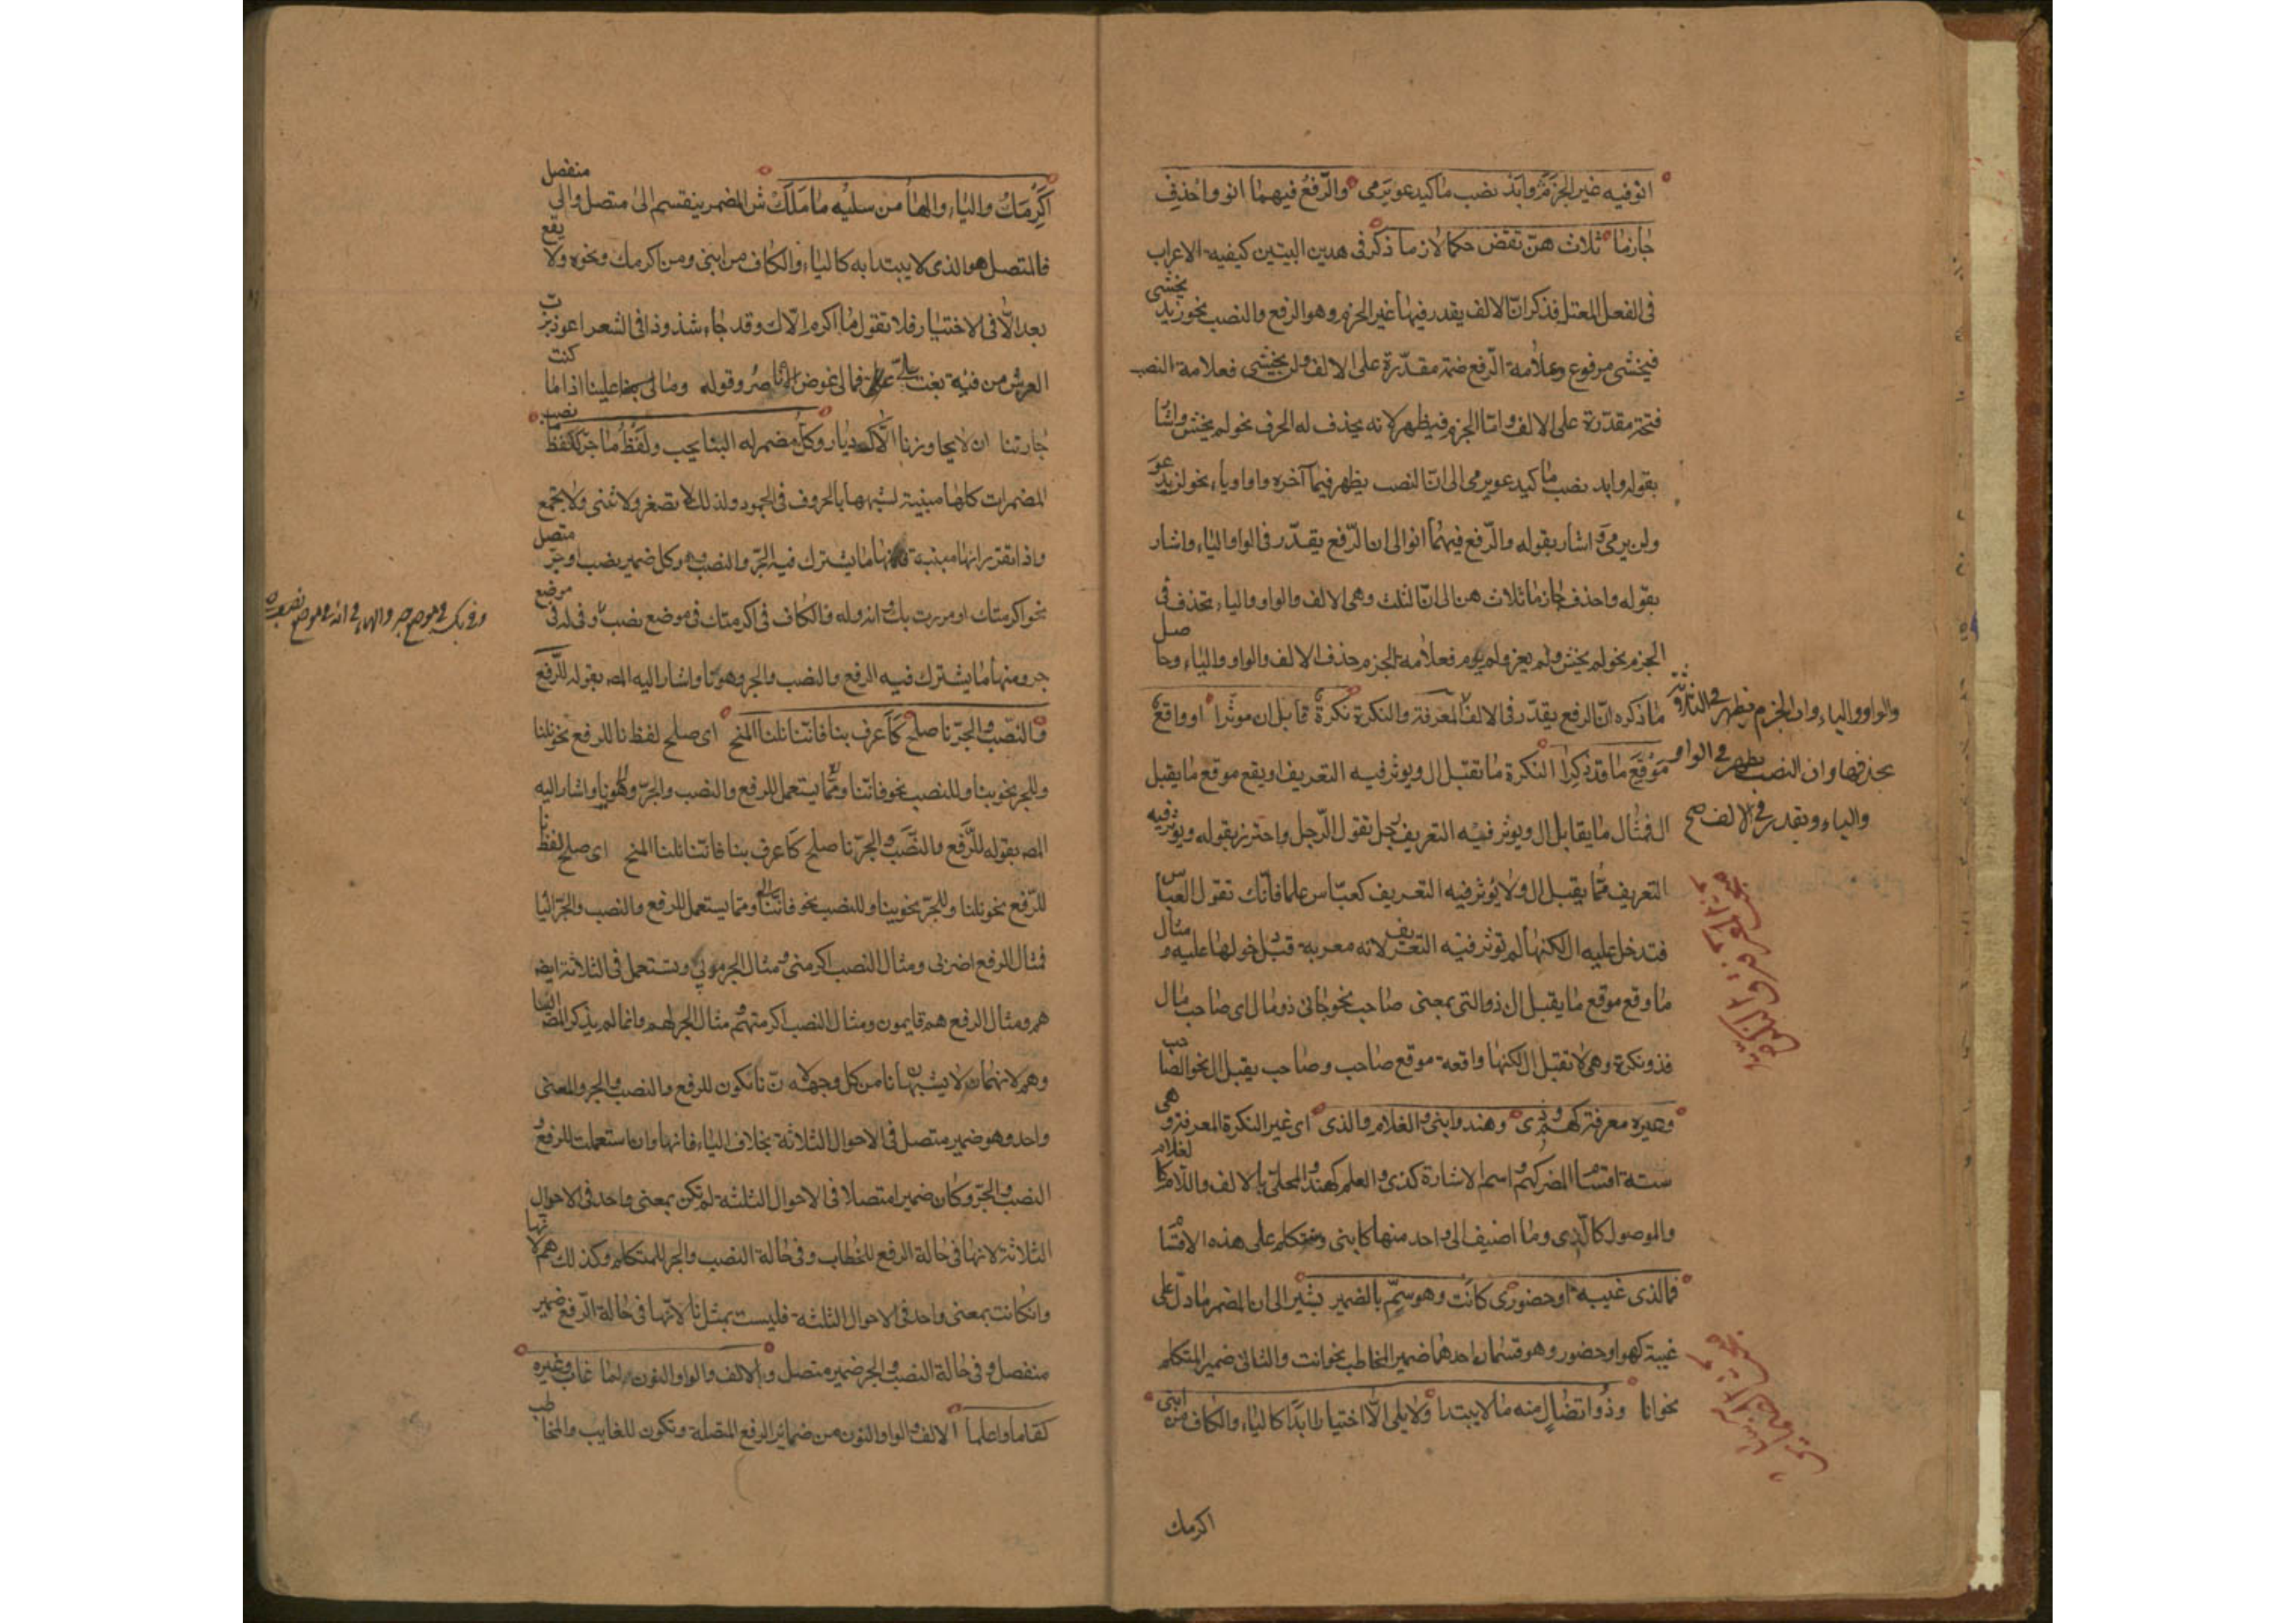 انو فيه غير الجزم وابد نصب ما كيدعو يرمى والرّفع فيهما انو واحذف
جازما ثلاث هنّ تقض حكما لازما ذكر فى هدين البيتين كيفية الاعراب
فى الفعل المعتل فذكر انّ الالف يقدر فيها غير الجزم وهو الرفع والنصب نحو زيد يخشى
فيخشى مرفوع وعلامة الرّفع ضمة مقدّرة على الالف ولن يخشى فعلامة النصب
فتحة مقدّرة على الالف وامّا الجزم فيظهر لانه يحذف له الحرف نحو لم يخش واشار
بقوله وابد نصب ما كيدعو يرمى الى انّ النصب يظهر فيما آخره واو او ياء نحو لن يدعو
ولن يرمى واشار بقوله والرّفع فيهما انو الى ان الرّفع يقدّر فى الواو والياء واشار
بقوله واحذف جازما ثلاث هن الى انّ الثلث وهى الالف والواو والياء تحذف فى
الجزم نحو لم يخش ولم يغز ولم يرم فعلامة الجزم حذف الالف والواو والياء وحاصل
ما ذكره انّ الرفع يقدّر فى الالف المعرفة والنكرة نكرة قابل ال موثرا او واقع
موقع ما قد ذكرا النكرة ما تقبل ال ويوثر فيه التعريف او يقع موقع ما يقبل
ال فمثال ما يقابل ال ويوثر فيه التعريف رجل تقول الرّجل واحترز بقوله ويوثر فيه
التعريف ممّا يقبل ال ولا يُوثر فيه التعريف كعبّاس علما فانّك تقول العبّاس
فتدخل عليه ال لكنها لم توثر فيه التعريف لانه معربة قبل دخولها عليه ومثال
ما وقع موقع ما يقبل ال ذو التى بمعنى صاحب نحو جانى ذو مال اى صاحب مال
فذو نكرة وهى لا تقبل ال لكنها واقعة موقع صاحب وصاحب يقبل ال نحو الصاحب
وغيره معرفة كهم وذى وهند وابنى والغلام والذى اى غير النكرة المعرفة وهى
ستة اقسام المضمر كهم واسم الاشارة كذى والعلم كهند والمحلّى بالالف واللام كالغلام
والموصول كالّذى وما اضيف الى واحد منها كابنى وسنتكلم على هذه الاقسام
فما لذى غيبة او حضور كانت وهو سمّ بالضمير يشير الى ان المضمر ما دلّ على
غيبة كهو او حضور وهو قسمان احدهما ضمير المخاطب نحو انت والثانى ضمير المتكلم
نحو انا وذُو اتصال منه ما لا يبتدا ولا يلى الّا اختيارا ابدًا كالياء والكاف من ابنى
اكرمك
والواو والياء وان الجزم يظهر فى الثلاثة
بحذفها وان النصب يظهر فى الواو
والياء ويقدر فى الالف صح
اكرمك والياء والها من سليه ما ملك ش المضمر ينقسم الى متصل والى منفصل
فالمتصل هو الذى لا يبتدا به كالياء والكاف من ابنى ومن اكرمك ونحوه ولا يقع
بعد الّا فى الاختيار فلا تقول ما اكرم الّاك وقد جاء شذوذا فى الشعر اعوذ برب
العرش من فئة بغت علىّ فما لى عوض الّاه ناصر وقوله وما لى علينا اذا ما كنت
جارتنا ان لا يجاورنا الّاك ديّار وكل مضمر له البنا يجب ولفظ ما جرّ كلفظ ما نصب
المضمرات كلها مبنية لشبهها بالحروف فى الجمود ولذلك لا تصغر ولا تثنى ولا تجمع
واذا تقرر انها مبنية فمنها ما يشترك فيه الجرّ والنصب وهو كل ضمير نصب او جرّ متصل
نحو اكرمتك او مررت بك وانه وله فالكاف فى اكرمتك فى موضع نصب وفى له فى موضع
جر ومنها ما يشترك فيه الرفع والنصب والجر وهو نا واشار اليه المص بقوله للرّفع
والنصب والجرّ نا صلح كاعرف بنا فانّنا نلنا المنح اى صلح لفظ نا للرفع نحو نلنا
وللجر نحو بنا وللنصب نحو فانّنا وممّا يستعمل للرفع والنصب والجرّ وهو نا واشار اليه
المص بقوله للرّفع والنصب والجرّ نا صلح كاعرف بنا فانّنا نلنا المنح اى صلح لفظ نا
للرّفع نحو نلنا وللجرّ نحو بنا وللنصب نحو فاننا ومما يستعمل للرفع والنصب والجرّ اليا
فمثال الرفع اضربى ومثال النصب اكرمنى ومثال الجر مربى ويستعمل فى الثلاثة ايض
هم ومثال الرفع هم قايمون ومثال النصب اكرمتهم ومثال الجر لهم وانما لم يذكر المص اليا
وهم لانهما لا يشبهان نا من كل وجه لان نا تكون للرفع والنصب والجر والمعنى
واحد وهو ضمير متصل فى الاحوال الثلاثة بخلاف الياء فانها وان استعملت للرفع و
النصب والجرّ وكان ضميرا متصلا فى الاحوال الثلثة لم تكن بمعنى واحد فى الاحوال
الثلاثة لانها فى حالة الرفع للخطاب وفى حالة النصب والجر للمتكلم وكذلك هم لانها
وان كانت بمعنى واحد فى الاحوال الثلثة فليست بمثل نا لانّها فى حالة الرّفع ضمير
منفصل وفى حالة النصب والجر ضمير متصل والالف والواو والنون لما غاب وغيره
كقاما واعلما الالف والواو والنون من ضمائر الرفع المتصلة وتكون للغايب والمخاطب